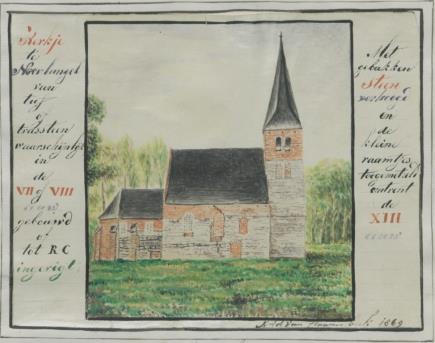 Kerkje
te
Noorlangel
van
tuf
of
trassteen
waarschynlyk
in
de
VII of VIII
eeuw
gebouwd
of
tot R C
ingerigt
Met
gebakken
Steen
verhoogd
en
de
kleine
raamtjes
toegemetseld
omtrent
de
XIII
eeuw
1869